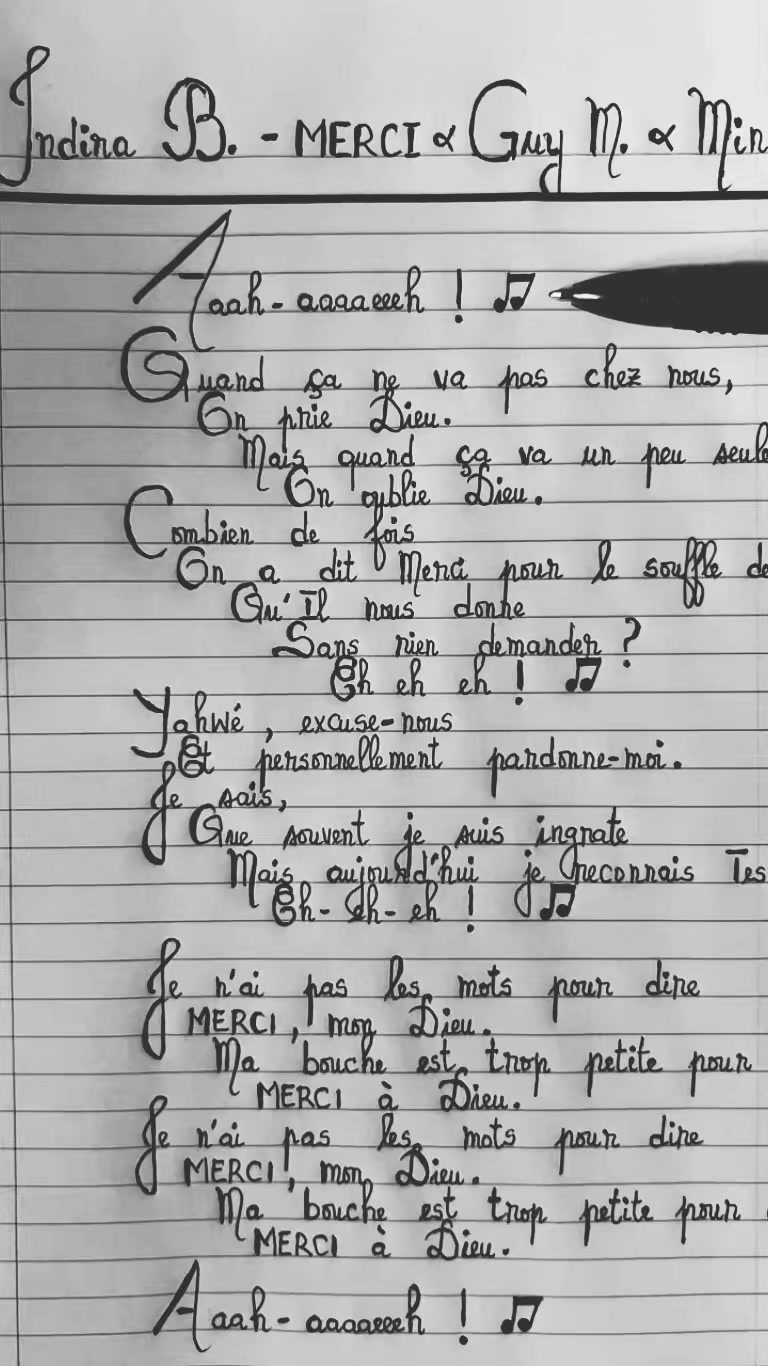 Indina B. - MERCI ∝ Guy M. ∝ Min
Aaah-aaaaeeeh ! ♫
Quand ça ne va pas chez nous,
On prie Dieu.
Mais quand ça va un peu seule
On oublie Dieu.
Combien de fois
On a dit Merci pour le souffle de
Qu'Il nous donne
Sans rien demander ?
Eh eh eh ! ♫
Yahwé, excuse-nous
Et personnellement pardonne-moi.
Je sais,
Que souvent je suis ingrate
Mais aujourd'hui je reconnais Tes
Eh-eh-eh ! ♫
Je n'ai pas les mots pour dire
MERCI, mon Dieu.
Ma bouche est trop petite pour
MERCI à Dieu.
Je n'ai pas les mots pour dire
MERCI, mon Dieu.
Ma bouche est trop petite pour
MERCI à Dieu.
Aaah-aaaaeeeh ! ♫